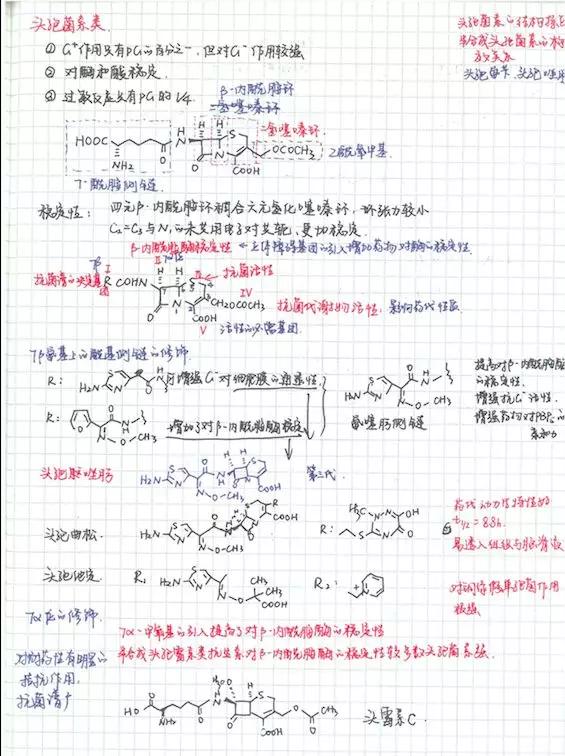 头孢菌素类
① G⁺作用只有PG的百分之一,但对G⁻作用较强
② 对酶和酸稳定.
③ 过敏反应只有PG的1/4
头孢菌素的结构
半合成头孢菌素的构
效关系
头孢
β-内酰胺环
二氢噻嗪环
HOOC
NH₂
O
N
H
H
H
S
N
O
COOH
OCOCH₃
二氢噻嗪环.
乙酰氧甲基.
7-酰胺侧链.
稳定性:四元β-内酰胺环稠合六元氢化噻嗪环,环张力较小
C₂=C₃与N₁的未共用电子对共轭,更加稳定.
β-内酰胺酶稳定性 ← 立体障碍基团的引入增加药物对酶的稳定性.
抗菌谱的决定基团
I
R
COHN
II
7α位
H
H
S
III
抗菌活性
N
O
IV
CH₂OCOCH₃
COOH
V
抗菌代谢物活性,影响药代性质
活性的必需基团.
7β氨基上的酰基侧链的修饰.
R:
H₂N
S
N
O
N
H
可增强G⁻对细胞膜的通透性
R:
O
O
N
H
N
O-CH₃
增加了对β-内酰胺酶稳定
H₂N
S
N
O
N
H
N
O-CH₃
氨噻肟侧链
提高对β-内酰胺酶
的稳定性.
增强抗G⁻活性.
增强药物对PBPs的
亲和力
头孢唑肟
H₂N
S
N
O
N
O-CH₃
H
H
S
N
O
COOH
第三代.
头孢曲松.
H₂N
S
N
O
N
O-CH₃
S
R
COOH
R:
H₃C
N
N
OH
N
O
S
药代动力学特性好
t₁/₂ = 8.8h.
易透入组织与脑脊液
头孢他啶.
R₁
H₂N
S
N
N
O
CH₃
CH₃
COOH
R₂:
N
+
对铜绿假单胞菌作用
极强
7α位的修饰.
7α-甲氧基的引入提高了对β-内酰胺酶的稳定性
半合成头孢霉素类抗生素对β-内酰胺酶的稳定性较多数头孢菌素强.
对耐药性有明显的
拮抗作用.
抗菌谱广
HO
O
NH₂
O
N
H
H₃CO
H
S
N
O
COOH
O
O
CH₃
头霉素C.